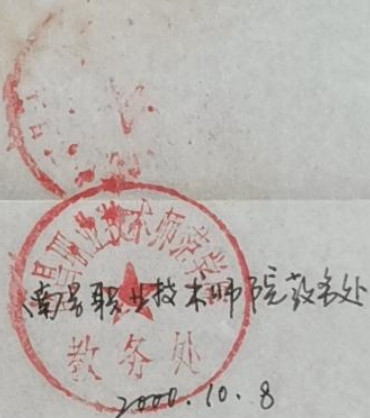 南昌职业技术师范学院
南昌职业技术师院教务处
教务处
2000.10.8